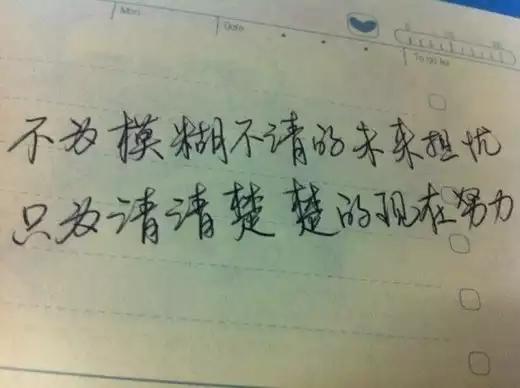 Date
不为模糊不清的未来担忧
只为清清楚楚的现在努力